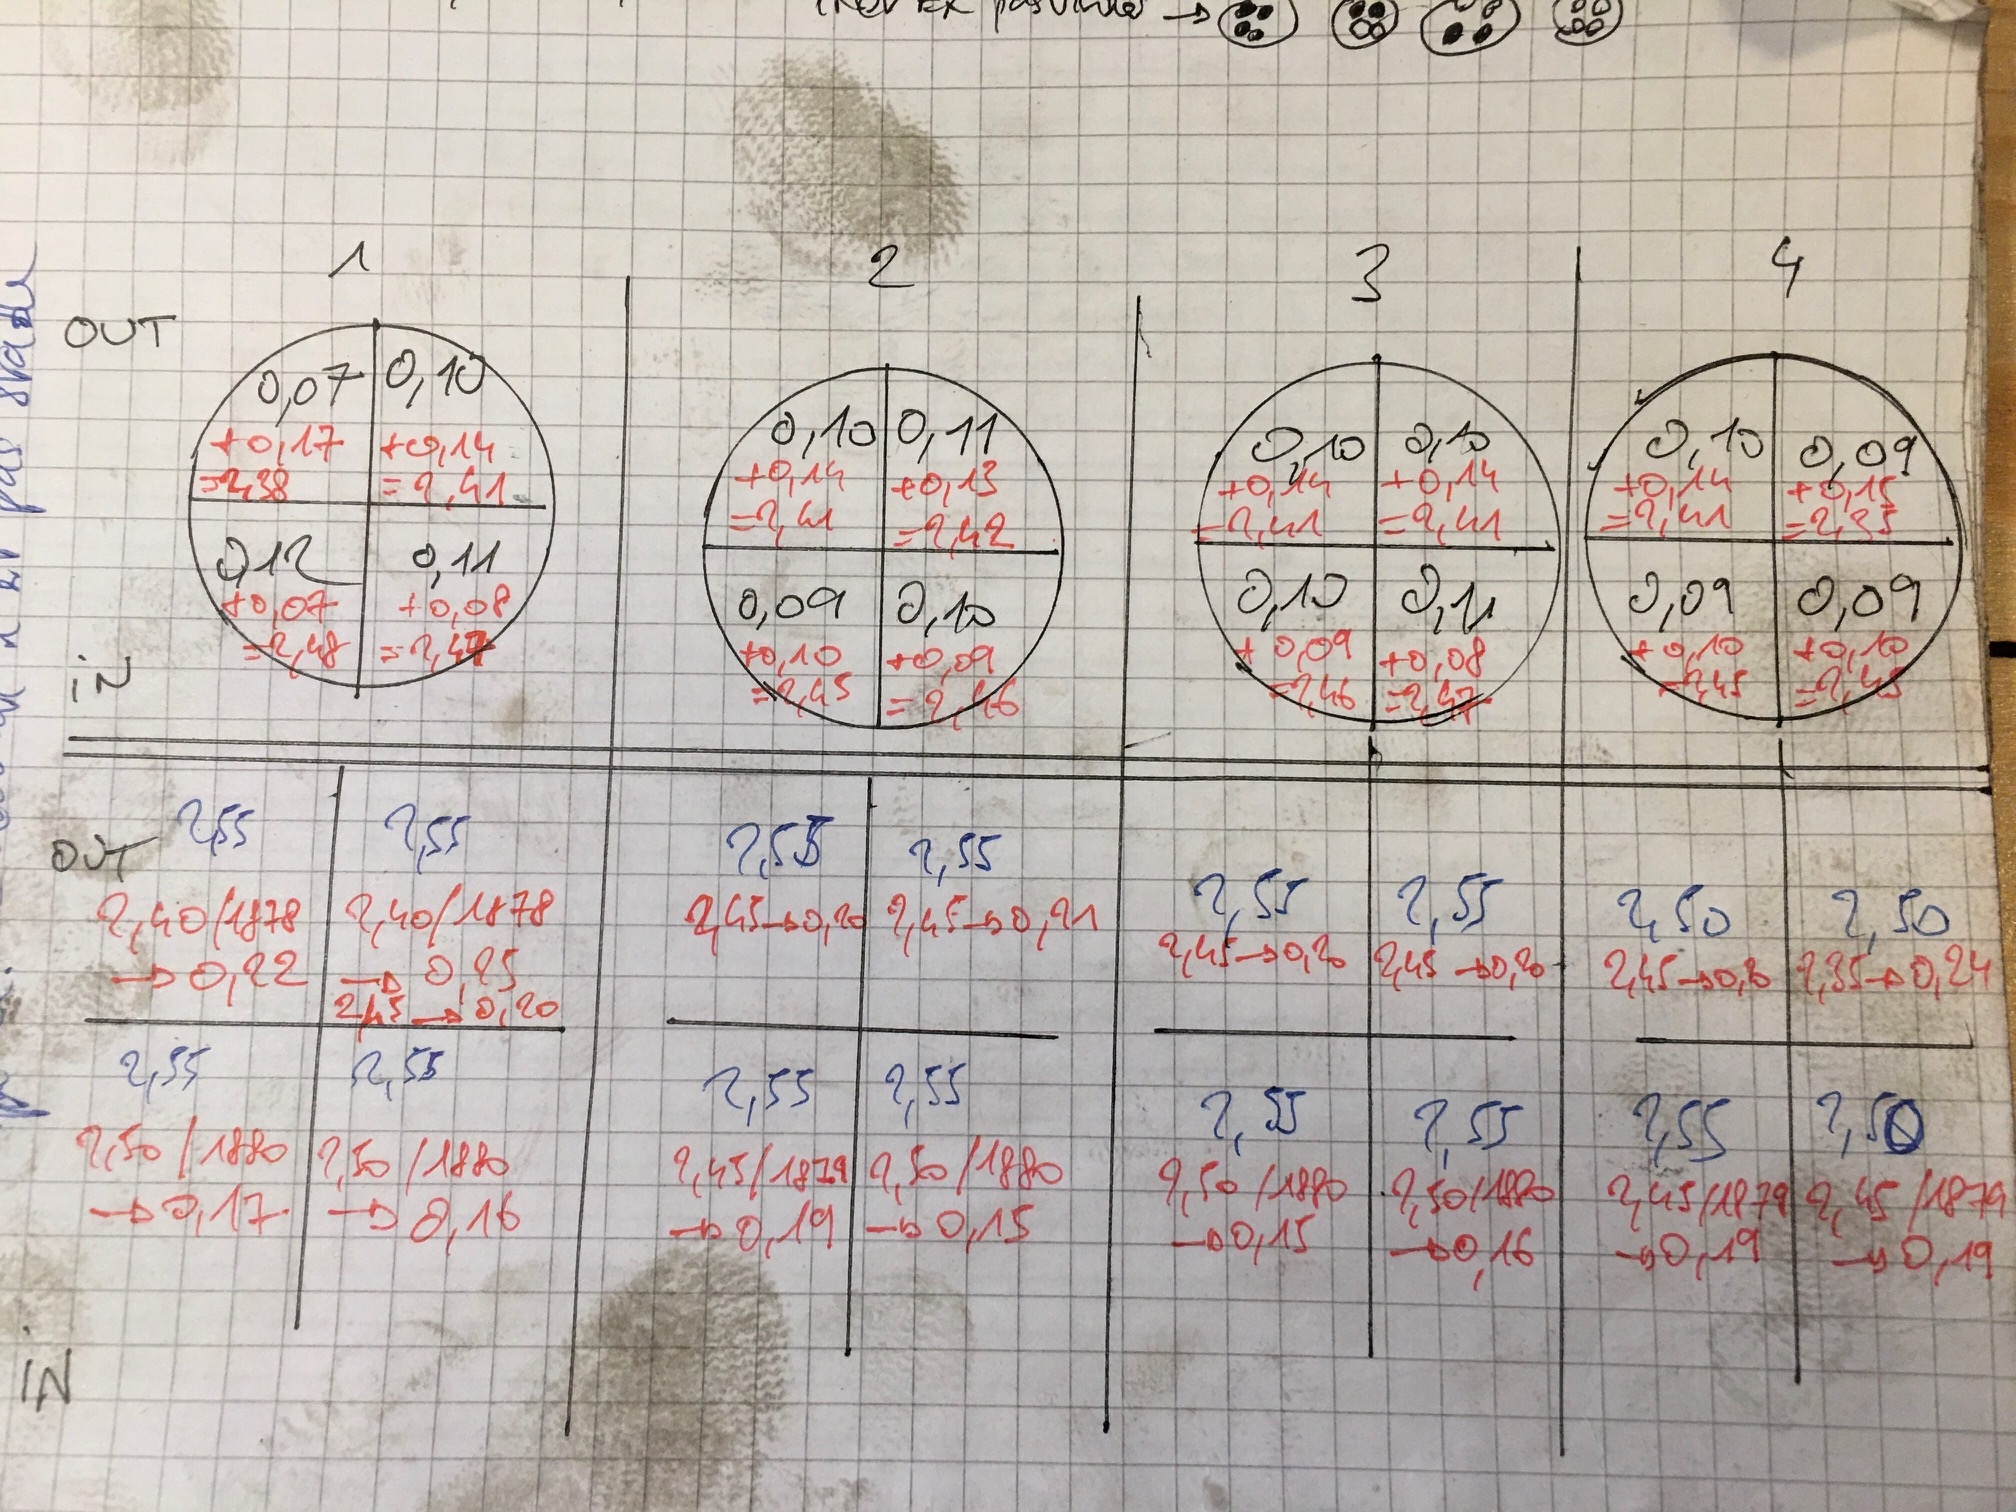 1 2 3 4
OUT
0,07 0,10
+0,17 +0,14
=2,38 =2,41
0,12 0,11
+0,07 +0,08
=2,48 =2,47
0,10 0,11
+0,14 +0,13
=2,41 =2,42
0,09 0,10
+0,10 +0,09
=2,45 =2,46
0,10 0,10
+0,14 +0,14
=2,41 =2,41
0,10 0,11
+0,09 +0,08
=2,46 =2,47
0,10 0,09
+0,14 +0,15
=2,41 =2,35
0,09 0,09
+0,10 +0,10
=2,45 =2,45
iN
OUT
2,55 2,55
2,40/1878 2,40/1878
→0,22 →0,25
2,45→0,20
2,55 2,55
2,50/1880 2,50/1880
→0,17 →0,16
2,55 2,55
2,45→0,20 2,45→0,21
2,55 2,55
2,45/1879 2,50/1880
→0,19 →0,15
2,55 2,55
2,45→0,20 2,45→0,20
2,55 2,55
2,50/1880 2,50/1880
→0,15 →0,16
2,50 2,50
2,45→0,20 2,35→0,24
2,55 2,50
2,45/1879 2,45/1879
→0,19 →0,19
IN